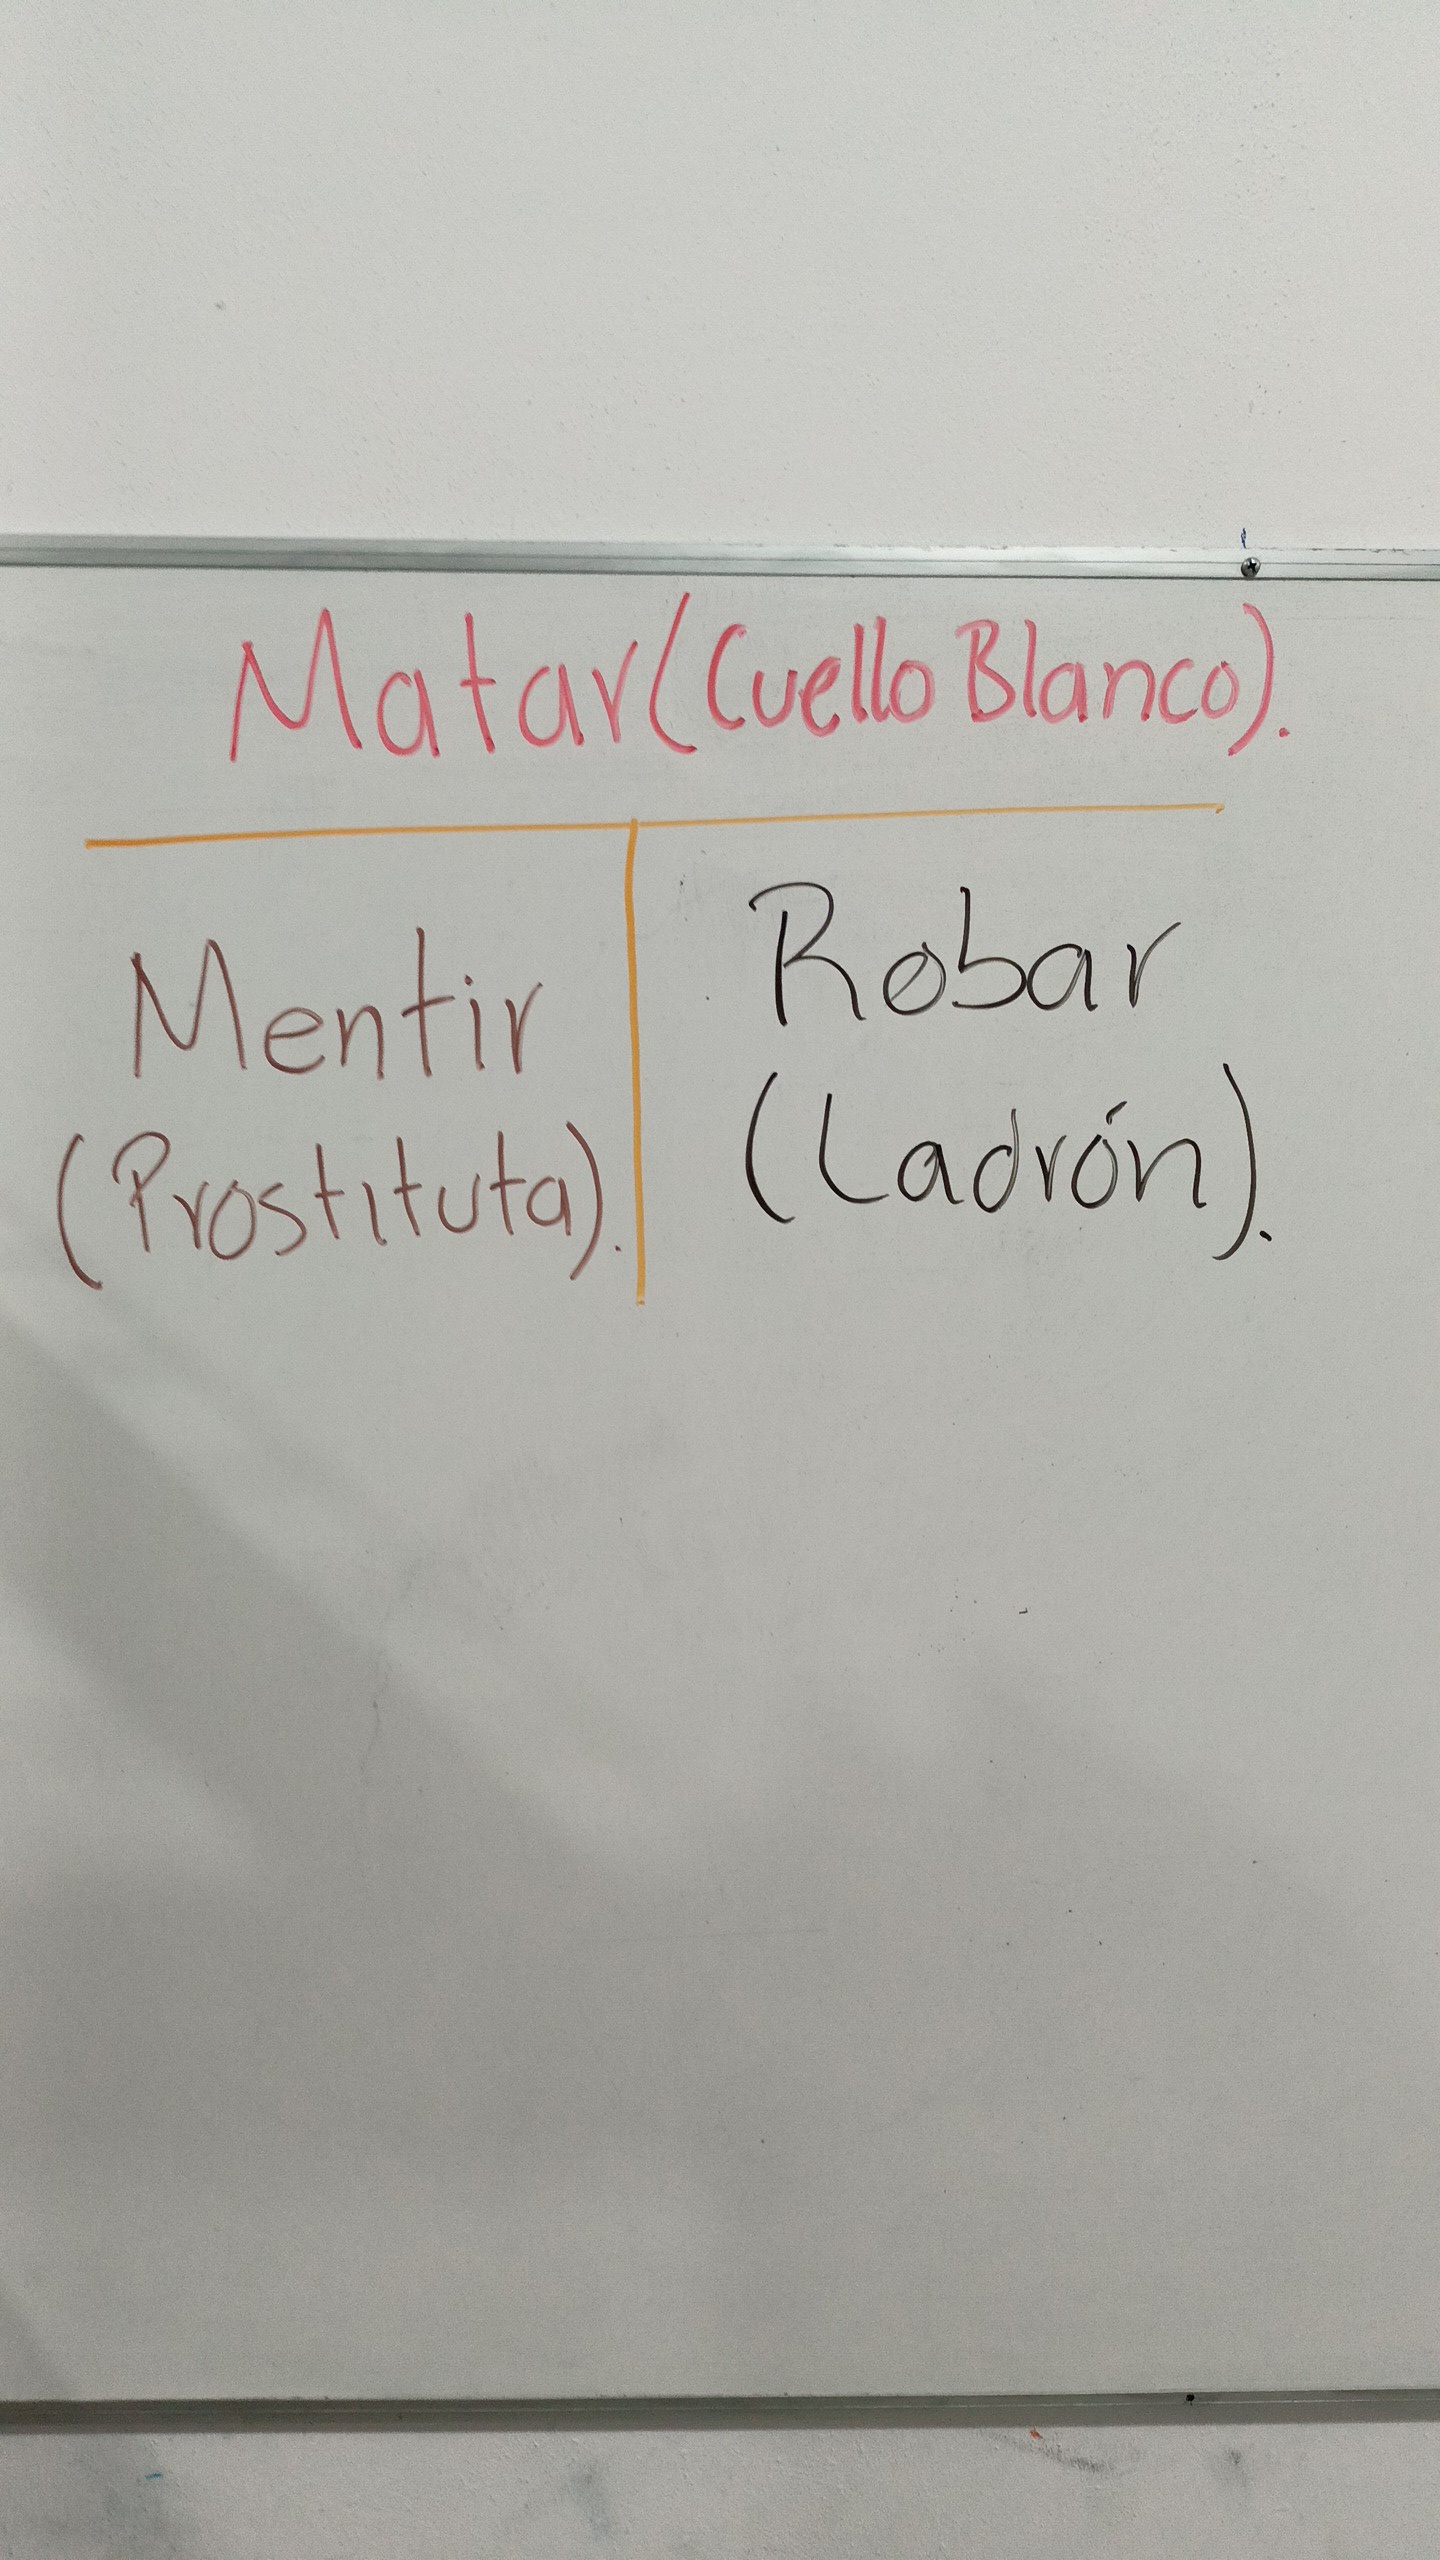 Matar (Cuello Blanco).
Mentir
(Prostituta).
Robar
(Ladrón).